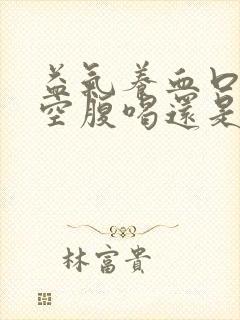 益氣養血口
空腹喝還是
林富貴